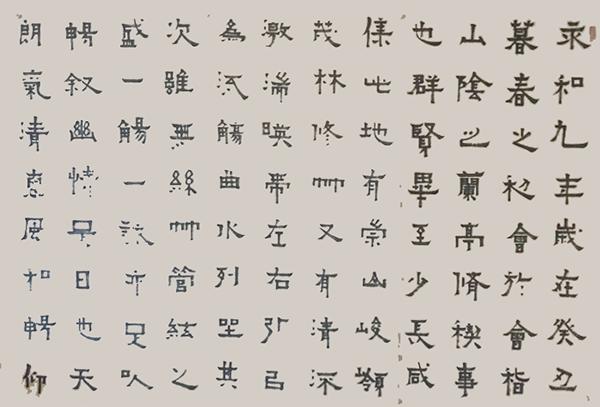 永和九年歲在癸丑
暮春之初會於會稽
山陰之蘭亭脩稧事
也群賢畢至少長咸
集此地有崇山峻嶺
茂林修竹又有清流
激湍映帶左右引以
為流觴曲水列坐其
次雖無絲竹管絃之
盛一觴一詠亦足以
暢叙幽情是日也天
朗氣清惠風和暢仰